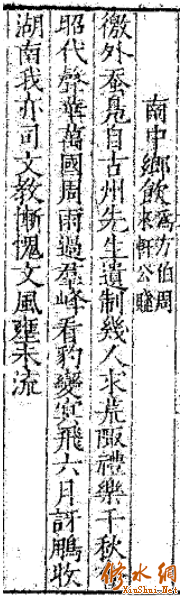 南中鄉飲為方伯周
來軒公
徼外蚕鳧自古州先生遺制幾人求荒陬禮樂千秋
昭代聲華萬國周雨過羣峰看豹變㝠飛六月訝鵬收
湖南我亦司文教慚愧文風壅未流
修水網
XiuShui.Net